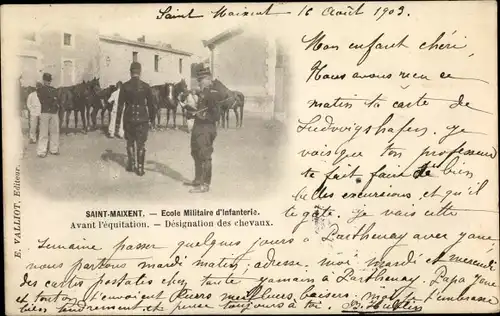 Saint Maixent 16 Août 1903.
Mon enfant chéri,
Nous avons reçu ce
matin ta carte de
Ludwigshafen. Je
vois que ton professeur
te fait faire de bien
belles excursions et qu'il
te gâte. Je vais cette
semaine passer quelques jours à Parthenay avec
nous partons mardi matin; adresse moi mardi et mercredi
des cartes postales chez tante à Parthenay. Papa
et tonton t'envoient leurs meilleurs baisers, t'embrasse
bien tendrement et pense toujours à toi.
SAINT-MAIXENT. — Ecole Militaire d'Infanterie.
Avant l'équitation. — Désignation des chevaux.
E. VALLIOT, Editeur.